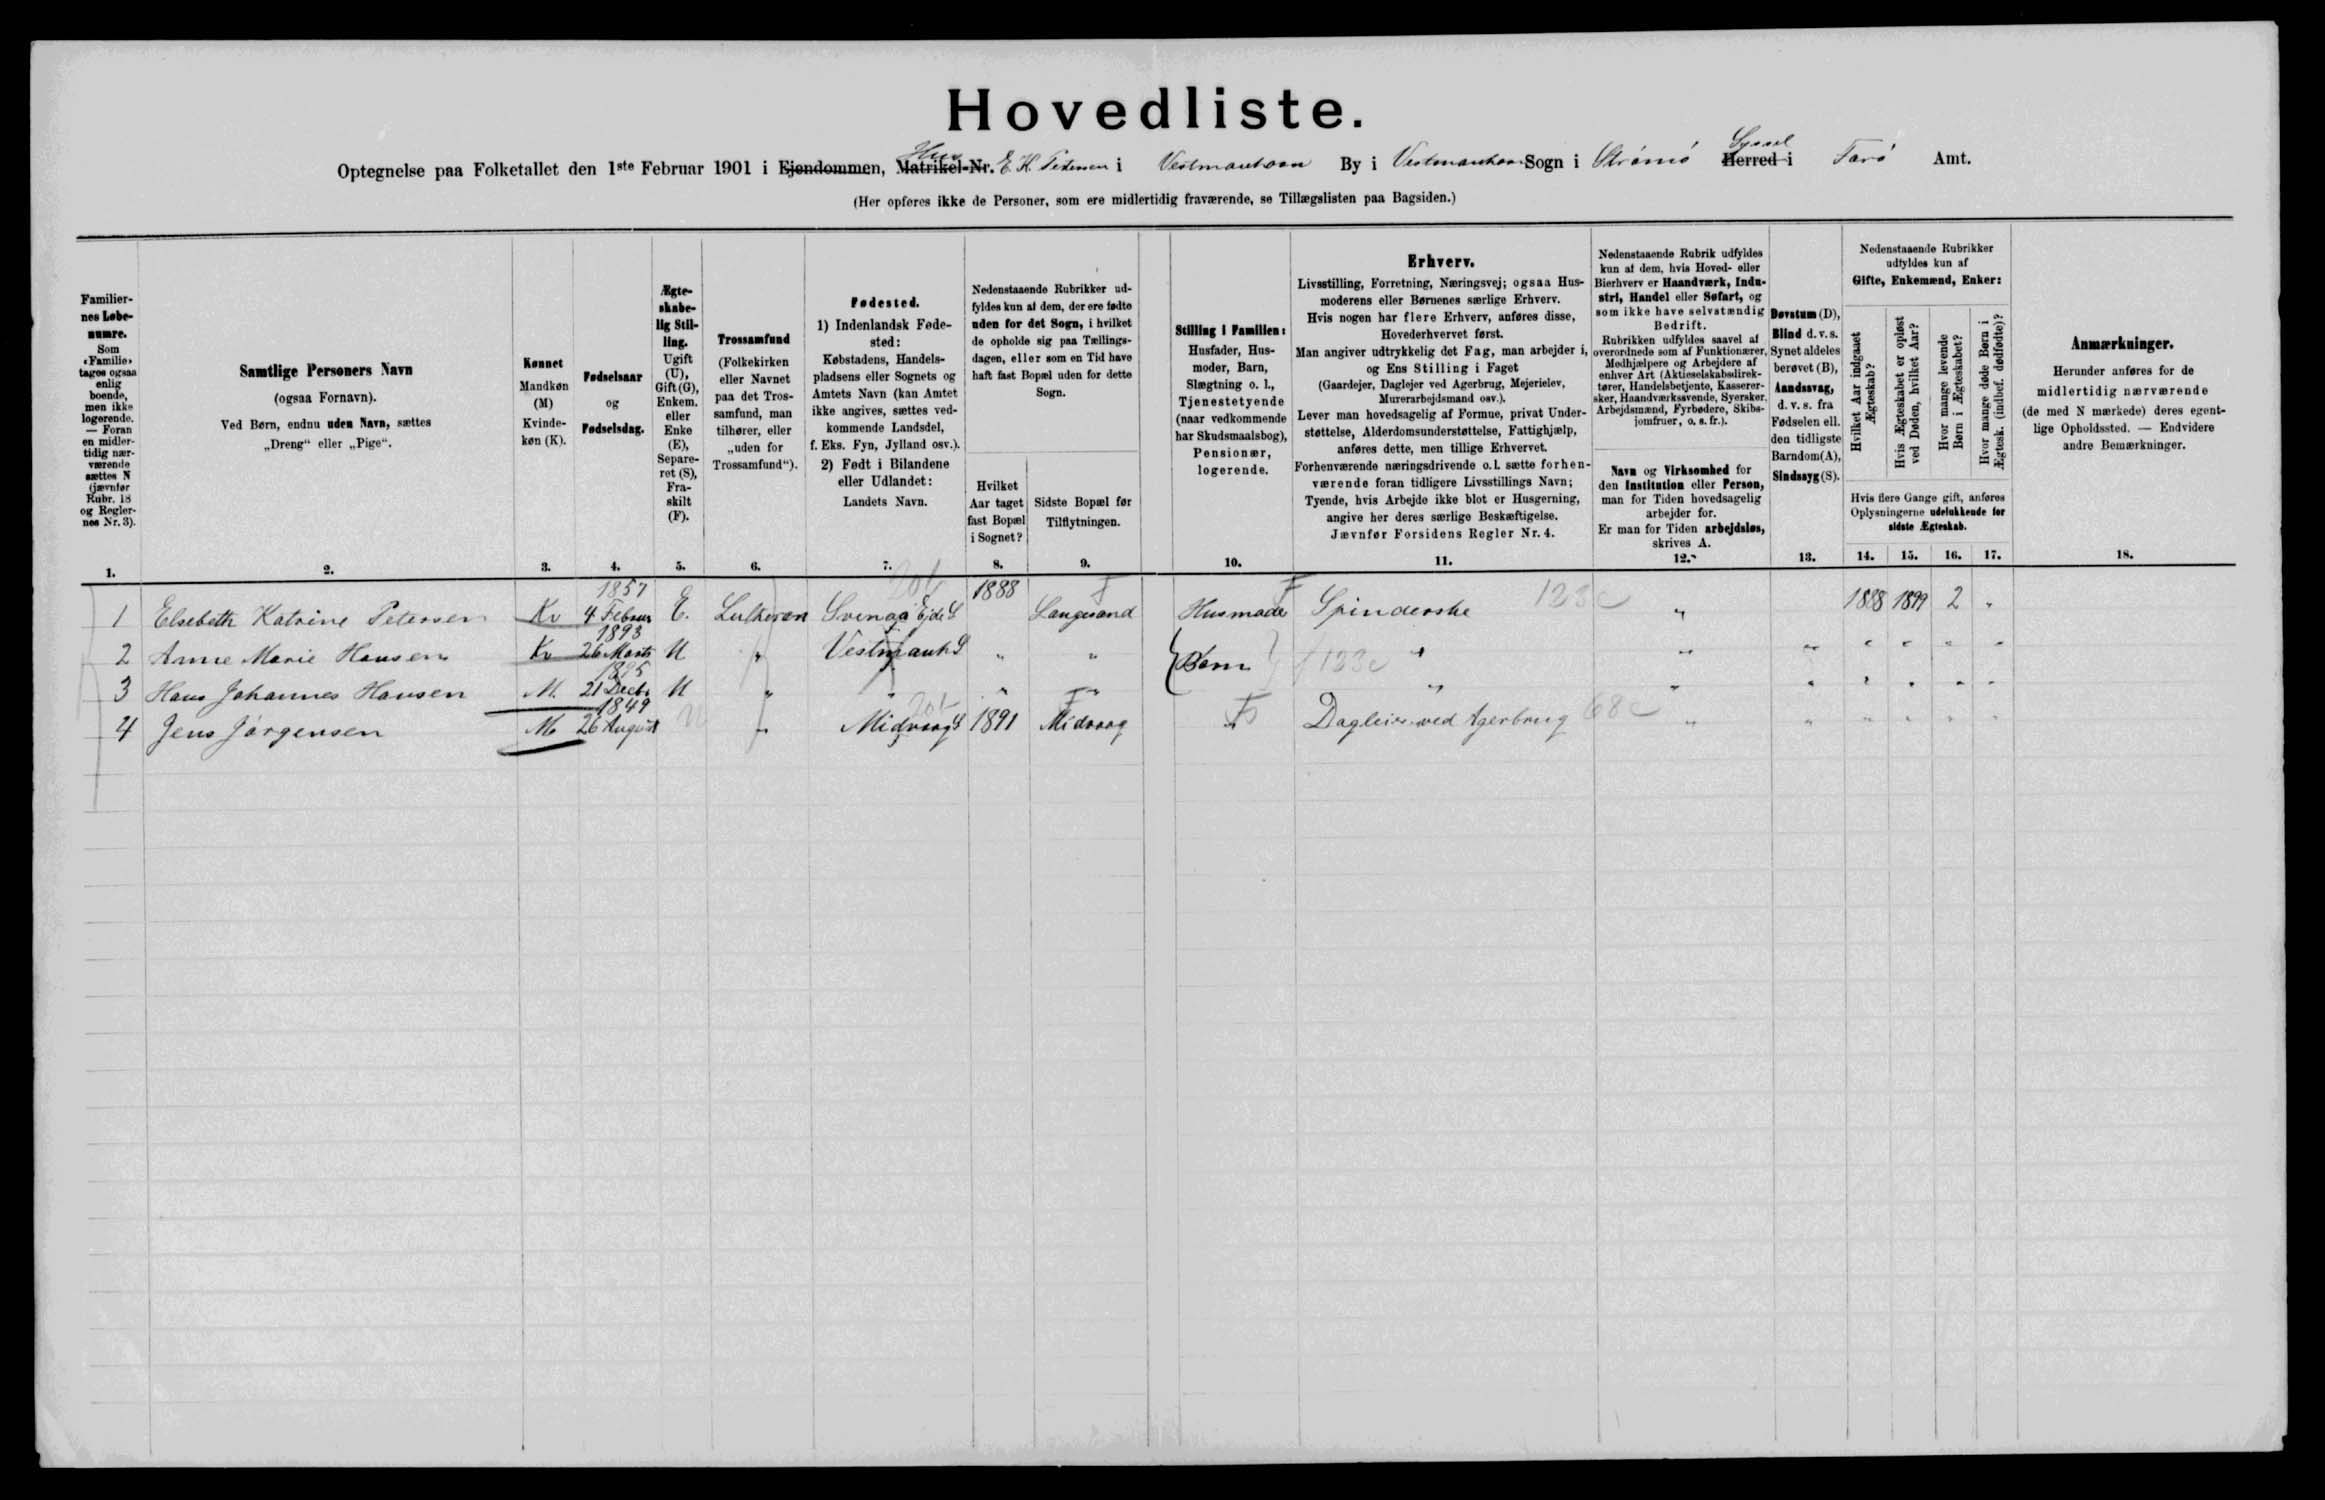 Hovedliste.
Optegnelse paa Folketallet den 1ste Februar 1901 i Ejendommen, Matrikel-Nr. Hus E. K. Petersen i Vestmanhavn By i Vestmanhavn Sogn i Strömö Herred i Syssel Farö Amt.
(Her opføres ikke de Personer, som ere midlertidig fraværende, se Tillægslisten paa Bagsiden.)
Familier-
nes Løbe-
numre.
Som
«Familie»
tages ogsaa
enlig
boende,
men ikke
logerende.
— Foran
en midler-
tidig nær-
værende
sættes N
(jævnfør
Rubr. 18
og Regler-
nes Nr. 3).
1.
Samtlige Personers Navn
(ogsaa Fornavn).
Ved Børn, endnu uden Navn, sættes
„Dreng“ eller „Pige“.
2.
Kønnet
Mandkøn
(M)
Kvinde-
køn (K).
3.
Fødselsaar
og
Fødselsdag.
4.
Ægte-
skabe-
lig Stil-
ling.
Ugift
(U),
Gift (G),
Enkem.
eller
Enke
(E),
Separe-
ret (S),
Fra-
skilt
(F).
5.
Trossamfund
(Folkekirken
eller Navnet
paa det Tros-
samfund, man
tilhører, eller
„uden for
Trossamfund“).
6.
Fødested.
1) Indenlandsk Føde-
sted:
Købstadens, Handels-
pladsens eller Sognets og
Amtets Navn (kan Amtet
ikke angives, sættes ved-
kommende Landsdel,
f. Eks. Fyn, Jylland osv.).
2) Født i Bilandene
eller Udlandet:
Landets Navn.
7.
Nedenstaaende Rubrikker ud-
fyldes kun af dem, der ere fødte
uden for det Sogn, i hvilket
de opholde sig paa Tællings-
dagen, eller som en Tid have
haft fast Bopæl uden for dette
Sogn.
Hvilket
Aar taget
fast Bopæl
i Sognet?
8.
Sidste Bopæl før
Tilflytningen.
9.
Stilling i Familien:
Husfader, Hus-
moder, Barn,
Slægtning o. l.,
Tjenestetyende
(naar vedkommende
har Skudsmaalsbog),
Pensionær,
logerende.
10.
Erhverv.
Livsstilling, Forretning, Næringsvej; ogsaa Hus-
moderens eller Børnenes særlige Erhverv.
Hvis nogen har flere Erhverv, anføres disse,
Hovederhvervet først.
Man angiver udtrykkelig det Fag, man arbejder i,
og Ens Stilling i Faget
(Gaardejer, Daglejer ved Agerbrug, Mejerielev,
Murerarbejdsmand osv.).
Lever man hovedsagelig af Formue, privat Under-
støttelse, Alderdomsunderstøttelse, Fattighjælp,
anføres dette, men tillige Erhvervet.
Forhenværende næringsdrivende o. l. sætte forhen-
værende foran tidligere Livsstillings Navn;
Tyende, hvis Arbejde ikke blot er Husgerning,
angive her deres særlige Beskæftigelse.
Jævnfør Forsidens Regler Nr. 4.
11.
Nedenstaaende Rubrik udfyldes
kun af dem, hvis Hoved- eller
Bierhverv er Haandværk, Indu-
stri, Handel eller Søfart, og
som ikke have selvstændig
Bedrift.
Rubrikken udfyldes saavel af
overordnede som af Funktionærer,
Medhjælpere og Arbejdere af
enhver Art (Aktieselskabsdirek-
tører, Handelsbetjente, Kasserer-
sker, Haandværkssvende, Syersker,
Arbejdsmænd, Fyrbødere, Skibs-
jomfruer, o. s. fr.).
Navn og Virksomhed for
den Institution eller Person,
man for Tiden hovedsagelig
arbejder for.
Er man for Tiden arbejdsløs,
skrives A.
12.
Døvstum (D),
Blind d. v. s.
Synet aldeles
berøvet (B),
Aandssvag,
d. v. s. fra
Fødselen ell.
den tidligste
Barndom (A),
Sindssyg (S).
13.
Nedenstaaende Rubrikker
udfyldes kun af
Gifte, Enkemænd, Enker:
Hvilket Aar indgaaet
Ægteskab?
Hvis Ægteskabet er opløst
ved Døden, hvilket Aar?
Hvor mange levende
Børn i Ægteskabet?
Hvor mange døde Børn i
Ægtesk. (indbef. dødfødte)?
Hvis flere Gange gift, anføres
Oplysningerne udelukkende for
sidste Ægteskab.
14. 15. 16. 17.
Anmærkninger.
Herunder anføres for de
midlertidig nærværende
(de med N mærkede) deres egent-
lige Opholdssted. — Endvidere
andre Bemærkninger.
18.
1 Elsebeth Katrine Petersen Kv 1857 4 Februar E. Lutheran Svinaa Ejde S 1888 Langesand Husmoder Spinderske 123c " 1888 1899 2 "
2 Anne Marie Hansen Kv 1893 26 Marts U " Vestmanh S " " Børn 123c " " " " " " "
3 Hans Johannes Hansen M. 1895 21 Decbr U " " " " " " " " " " "
4 Jens Jörgensen M 1849 26 August U " Midvaag S 1891 Midvaag " Dagleier ved Agerbrug 68c " " " " " "